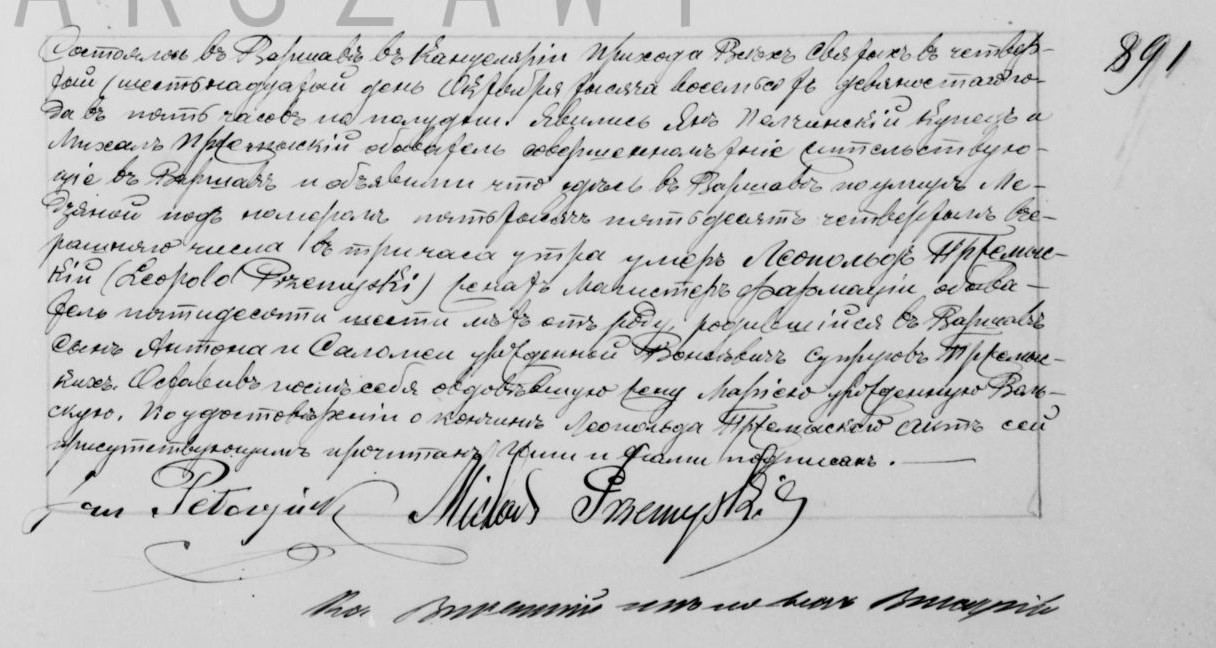 ARSZAWY
891
Состоялось въ Варшавѣ въ Канцелярiи прихода Всѣхъ Святыхъ въ четвер-
тый (шестьнадцатый день Октября тысяча восемьсотъ девяностаго го-
да въ пять часовъ по полудни. Явились Янъ купецъ и
Михалъ Пржемыскiй обыватель совершеннолѣтнiе жительствую-
щiе въ Варшавѣ и объявили что здѣсь въ Варшавѣ по улицѣ Ме-
дзяной подъ номеромъ пять тысячъ пятьдесятъ четвертымъ вче-
рашняго числа въ три часа утра умеръ Леопольдъ Пржемыс-
кiй (Leopold Przemyski) женатъ Магистеръ фармацiи обыва-
тель пятидесяти шести лѣтъ отъ роду, родившiйся въ Варшавѣ
сынъ Антона и Саломеи урожденной супруговъ Пржемыс-
кихъ. Оставивъ послѣ себя овдовѣвшую жену Марiю урожденную Воль-
скую. По удостовѣренiи о кончинѣ Леопольда Пржемыскаго Актъ сей
присутствующимъ прочитанъ Нами и ими подписанъ.
Jan Michał Przemyski